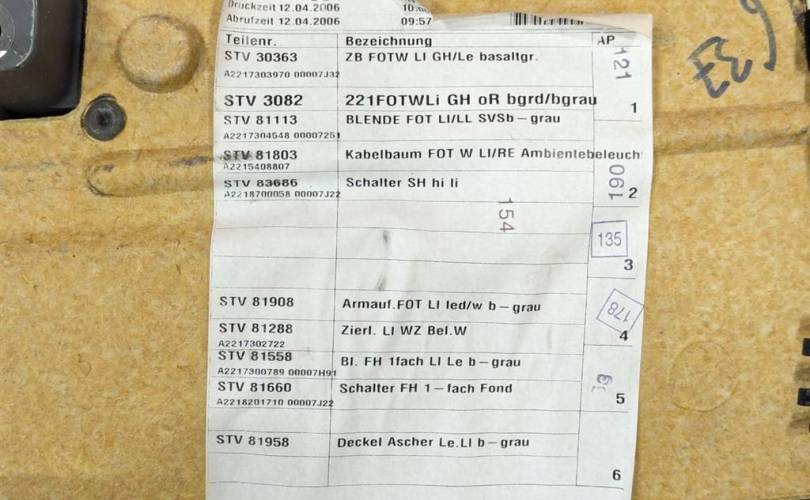 Druckzeit 12.04.2006
Abrufzeit 12.04.2006 09:57
Teilenr. Bezeichnung AP
STV 30363 ZB FOTW LI GH/Le basaltgr.
A2217303970 00007J32
121
STV 3082 221FOTWLi GH oR bgrd/bgrau 1
STV 81113 BLENDE FOT LI/LL SVSb-grau
A2217304548 00007251
STV 81803 Kabelbaum FOT W LI/RE Ambientebeleuch
A2215408807
STV 83686 Schalter SH hi li 2
A2218700058 00007J22
160
154
135
3
STV 81908 Armauf.FOT LI led/w b-grau
178
STV 81288 Zierl. LI WZ Bel.W 4
A2217302722
STV 81558 Bl. FH 1fach LI Le b-grau
A2217300789 00007H91
STV 81660 Schalter FH 1-fach Fond 5
A2218201710 00007J22
STV 81958 Deckel Ascher Le.LI b-grau
6